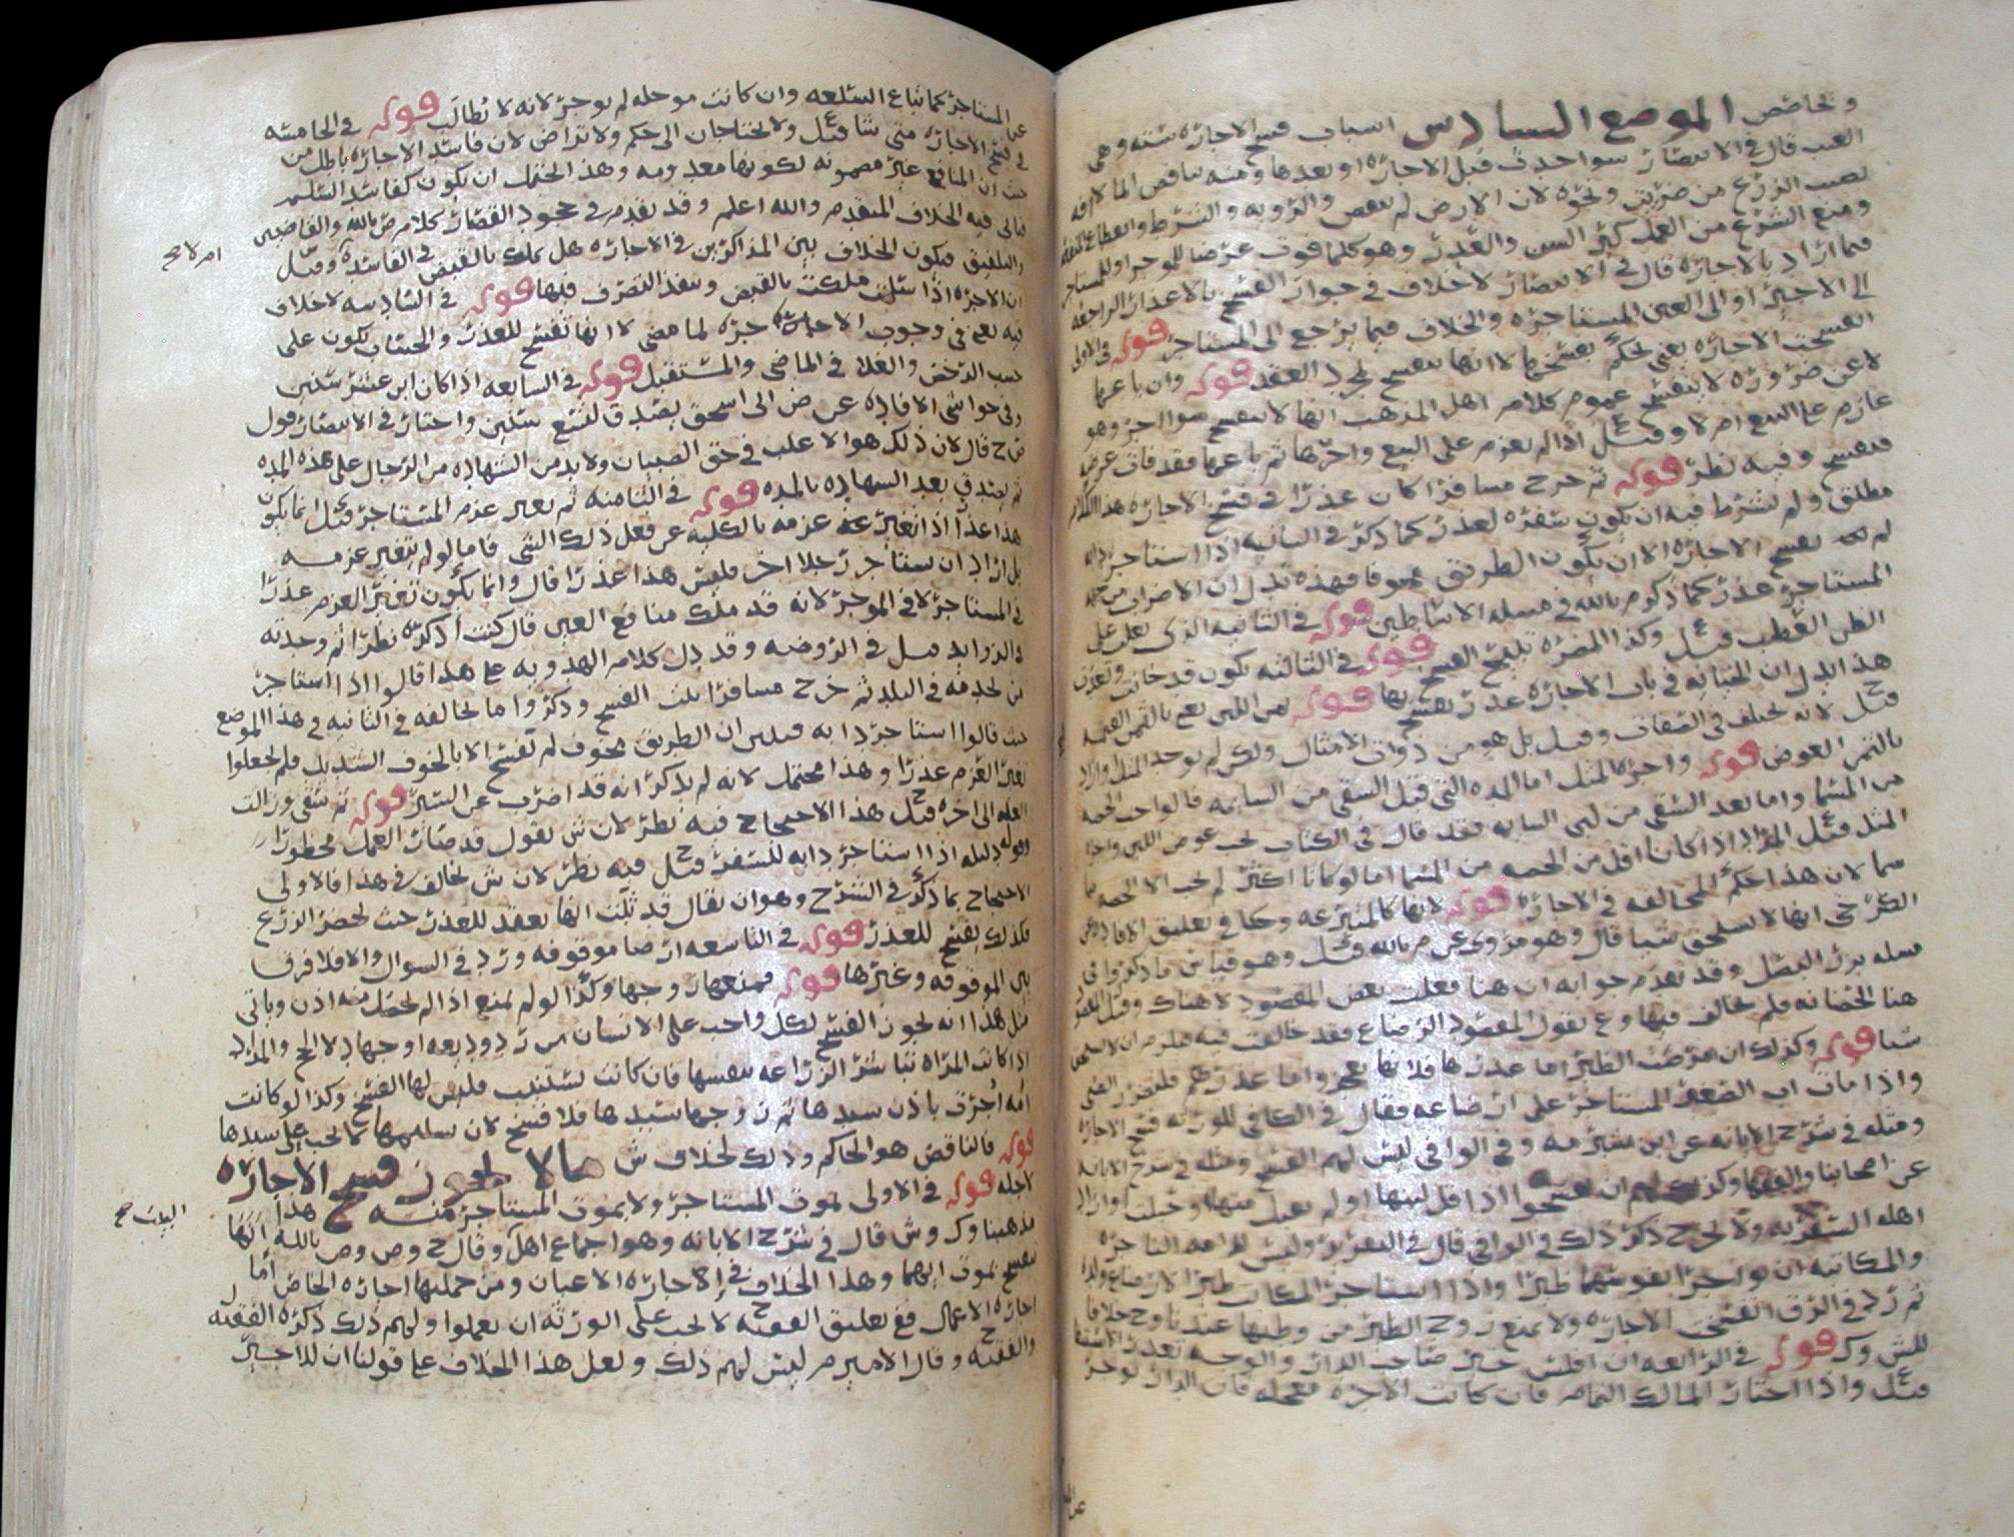 وخاص الموضع السادس اسباب فسخ الاجاره سته وهي
العيب قال في الانتصار سوا حدث قبل الاجاره او بعدها ومنه تناقص الما لافه
تصيب الزرع من ضريب ونحوه لان الارض لم تنقص والرويه والشرط
ومنع الشرع من العمل كبر السن والعذر وهو كلما فوت عرضا للموجر او للمستاجر
فيما اراد بالاجاره قال في الانتصار لا خلاف في جواز الفسخ بالاعذار الراجعه
الى الاجير او الى العين المستاجره والخلاف فيما يرجع الى المستاجر قوله في الاولى
انفسخت الاجاره يعني لحكم بفسخها لا انها تنفسخ بمجرد العقد قوله وان باعها
لا عن ضروره لا ينفسخ عموم كلام اهل المذهب انها لا تنفسخ سوا اجر وهو
عازم على البيع ام لا وقيل اذا لم يعزم على البيع واجرها ثم باعها فقد فات عرضه
فتفسخ وفيه نظر قوله ثم خرج مسافرا كان عذرا في فسخ الاجاره هذا الكلام
مطلق ولم يشرط فيه ان يكون سفره لعذر كما ذكر في الثانيه اذا استاجر دابه
لم تفسخ الاجاره الا ان يكون الطريق مخوفا فهذه تدل ان الاضراب من جهه
المستاجر عذر كما ذكره م بالله في مسله الاساطين قوله في الثانيه الذي يغلب على
الظن العطب قيل وكذا المضره تبيح الفسخ قوله في الثالثه يكون قد خانت
هذا يدل ان الخيانه في باب الاجاره عذر تفسخ بها قوله ثمن اللبن يعني بالثمن القيمه
قيل لانه يختلف في الصفات وقيل بل هو من ذوات الامثال ولكن لم يوجد المثل واراد
بالثمن العوض قوله واجره المثل اما المده التي قبل السقي من السايمه قالوا
من المسما واما بعد السقي من لبن السايمه فقد قال في الكتاب يجب عوض اللبن واجره
المثل قيل المراد اذا كانا اقل من الحصه من المسما اما لو كانا اكثر لم يجب الا الحصه
سما لان هذا حكم المخالفه في الاجاره قوله لانها كالمتبرعه وحكا في تعليق الافاده عن
الكرخي انها لا تستحق شيا قال وهو مروي عن م بالله وقيل وهو قياس ما ذكروا في
مسله بذر البصل وقد تقدم جوابه ان هنا فعلت بعض المقصود لا هناك
هنا الحضانه فلم تخالف فيها وع يقول المقصود الرضاع فقد خالفت فيه فيلزم ان لا تستحق
شيا قوله وكذلك ان مرضت الظير اما عذرها فلانها تعجز واما عذرهم فلتضرر الصبي
واذا مات اب الصغير المستاجر على ارضاعه فقال في الكافي للورثه فسخ الاجاره
ومثله في شرح الابانه عن ابن شبرمه وفي الوافي ليس لهم الفسخ ومثله في شرح الابانه
عن اصحابنا والفقها وكذلك لهم ان يفسخوا اذا قل لبنها او لم يقبل منها او حبلت او اراد
اهله السفر به ولا تخرج ذكر ذلك في الوافي قال في التقرير وليس
والمكاتبه ان تواجر نفوسهما ظيرا واذا استاجر المكاتب ظيرا لارضاع ولده
ثم رد في الرق انفسخت الاجاره ولا يمنع زوج الظير من وطيها عندنا وح خلافا
لش وك قوله في الرابعه ان افلس خير صاحب الدار والوجه تعذر الاستيفا
قيل واذا اختار المالك التمام فان كانت الاجره معجله فان الدار توجر
عن المستاجر كما تباع السلعه وان كانت موجله لم توجر لانه لا تطالب قوله في الخامسه
في فسخ الاجاره متى شا قيل ولا يحتاجان الى حكم ولا تراض لان فاسد الاجاره باطل من
حيث ان المنافع غير مضمونه لكونها معدومه وهذا يحتمل ان يكون كفاسد السلم
فياتي فيه الخلاف المتقدم والله اعلم وقد تقدم في جحود القصار كلام م بالله والقاضيين
والتلفيق فيكون الخلاف بين المذاكرين في الاجاره هل تملك بالقبض في الفاسده ام لا صح وقيل
ان الاجره اذا سلمت ملكت بالقبض وينفذ التصرف فيها قوله في السادسه لا خلاف
فيه يعني في وجوب الاجاره اجره لما مضى لا انها تفسخ للعذر والحساب يكون على
حسب الرخص والغلا في الماضي والمستقبل قوله في السابعه اذا كان ابن عشر سنين
وفي حواشي الافاده عن ض الى اسحق يصدق لتسع سنين واختار في الانتصار قول
ض ح قال لان ذلك هو الاغلب في حق الصبيان ولا بد من الشهاده من الرجال على هذه المده
ثم يصدق بعد الشهاده بالمده قوله في الثامنه ثم تغير عزم المستاجر قيل انما يكون
هذا عذرا اذا تغير عزمه بالكليه عن فعل ذلك الشي فاما لو لم يتغير عزمه
بل اراد ان يستاجر رجلا اخر فليس هذا عذرا قال وانما يكون تغير العزم عذرا
في المستاجر لا في الموجر لانه قد ملك منافع العين قال كنت اذكره نظرا ثم وجدته
في الزوايد قيل في الروضه وقد دل كلام الهدويه على هذا قالوا اذا استاجر
من يخدمه في البلد ثم خرج مسافرا بنت الفسخ وذكروا ما يخالفه في الثانيه وفي هذا الموضع
حيث قالوا استاجر دابه فتبين ان الطريق مخوف لم تفسخ الا بالخوف الشديد فلم يجعلوا
تغير العزم عذرا وهذا محتمل لانه لم يذكر انه قد اضرب عن السير قوله ثم شفي وزالت
العله الى اخره قيل هذا الاحتجاج فيه نظر لان ش يقول قد صار العمل محظورا
قوله دليله اذا استاجر دابه للسفر قيل فيه نظر لان ش يخالف في هذا فالاولى
الاحتجاج بما ذكر في الشرح وهو ان يقال قد ثبت انها تعقد للعذر حيث يحضر الزرع
فكذلك تفسخ للعذر قوله في التاسعه ارضا موقوفه ورد في السوال والا فلا فرق
بين الموقوفه وغيرها قوله فمنعها زوجها وكذا لو لم يمنع اذا لم يحصل منه اذن وياتي
مثل هذا انه يجوز الفسخ لكل واجب على الانسان من رد وديعه او جهاد لا الحج والمراد
اذا كانت المراه تباشر الزراعه بنفسها فان كانت تستنيب فليس لها الفسخ وكذا لو كانت
امه اجرت باذن سيدها ثم زوجها سيدها فلا فسخ لان تسليمها لا يجب على سيدها
قوله فالناقض هو الحاكم وذلك لخلاف ش ما لا يجوز فسخ الاجاره
لاجله قوله في الاولى بموت المستاجر ولا بموت المستاجر منه هذا
مذهبنا وك وش قال في شرح الابانه وهو اجماع اهل البيت صح وقال ح وص وص بالله انها
تنفسخ بموت ايهما وهذا الخلاف في اجاره الاعيان ومن جملتها اجاره الخاص اما
اجاره الاعمال فع تعليق الفقيه لا يجب على الورثه ان يعملوا ولهم ذلك ذكره الفقيه
والفقيه وقال الامير م ليس لهم ذلك ولعل هذا الخلاف على قولنا ان للاجير